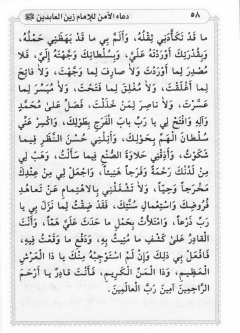 ٥٨ دعاء الأمن للإمام زين العابدين
مَا قَدْ تَكَأَّدَنِي ثِقْلُهُ، وَأَلَمَّ بِي مَا قَدْ بَهَظَنِي حَمْلُهُ،
وَبِقُدْرَتِكَ أَوْرَدْتَهُ عَلَيَّ، وَبِسُلْطَانِكَ وَجَّهْتَهُ إِلَيَّ، فَلَا
مُصْدِرَ لِمَا أَوْرَدْتَ وَلَا صَارِفَ لِمَا وَجَّهْتَ، وَلَا فَاتِحَ
لِمَا أَغْلَقْتَ، وَلَا مُغْلِقَ لِمَا فَتَحْتَ، وَلَا مُيَسِّرَ لِمَا
عَسَّرْتَ، وَلَا نَاصِرَ لِمَنْ خَذَلْتَ، فَصَلِّ عَلَى مُحَمَّدٍ
وَآلِهِ وَافْتَحْ لِي يَا رَبِّ بَابَ الْفَرَجِ بِطَوْلِكَ، وَاكْسِرْ عَنِّي
سُلْطَانَ الْهَمِّ بِحَوْلِكَ، وَأَنِلْنِي حُسْنَ النَّظَرِ فِيمَا
شَكَوْتُ، وَأَذِقْنِي حَلَاوَةَ الصُّنْعِ فِيمَا سَأَلْتُ، وَهَبْ لِي
مِنْ لَدُنْكَ رَحْمَةً وَفَرَجاً هَنِيئاً، وَاجْعَلْ لِي مِنْ عِنْدِكَ
مَخْرَجاً وَحِيّاً، وَلَا تَشْغَلْنِي بِالِاهْتِمَامِ عَنْ تَعَاهُدِ
فُرُوضِكَ وَاسْتِعْمَالِ سُنَّتِكَ، فَقَدْ ضِقْتُ لِمَا نَزَلَ بِي يَا
رَبِّ ذَرْعاً، وَامْتَلَأْتُ بِحَمْلِ مَا حَدَثَ عَلَيَّ هَمّاً، وَأَنْتَ
الْقَادِرُ عَلَى كَشْفِ مَا مُنِيتُ بِهِ، وَدَفْعِ مَا وَقَعْتُ فِيهِ،
فَافْعَلْ بِي ذَلِكَ وَإِنْ لَمْ أَسْتَوْجِبْهُ مِنْكَ يَا ذَا الْعَرْشِ
الْعَظِيمِ، وَذَا الْمَنِّ الْكَرِيمِ، فَأَنْتَ قَادِرٌ يَا أَرْحَمَ
الرَّاحِمِينَ آمِينَ رَبَّ الْعَالَمِينَ.